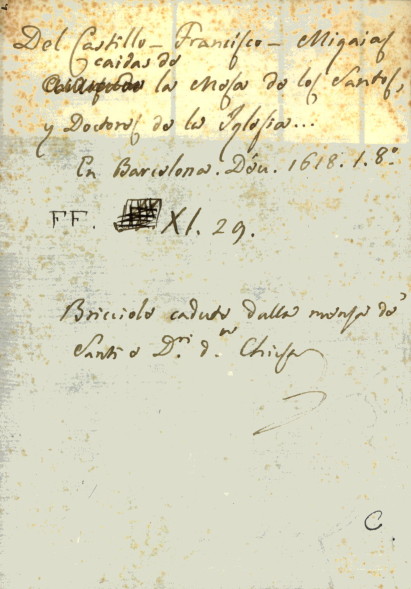 Del Castillo - Francisco - Migaias
caidas de
la Mesa de los Santos,
y Doctores de la Iglesia...
En Barcelona. Déu. 1618. 1. 8º
FF. XI. 29.
Bricciole cadute dalla mensa de'
Santi e D.ri d. Chiesa
C